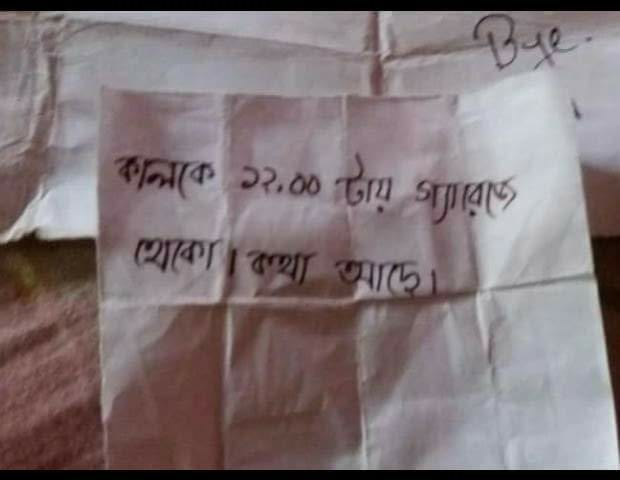 Bye.
কালকে ১২.০০ টায় গ্যারেজে
থেকো। কথা আছে।